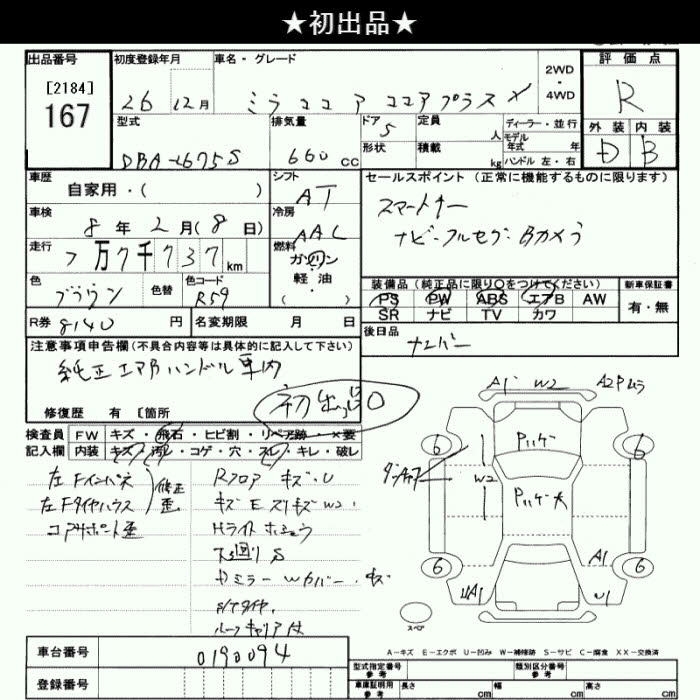 ★初出品★
出品番号
[2184]
167
初度登録年月
26 12月
車名・グレード
ミラココア ココアプラスX
2WD
・
4WD
評価点
R
外装 内装
D B
型式
DBA-L675S
排気量
660 cc
ドア 5
形状
定員
人
積載
kg
ディーラー・並行
モデル
年式 年
ハンドル 左・右
車歴
自家用・( )
シフト
AT
セールスポイント (正常に機能するものに限ります)
スマートキー
ナビ・フルセグ・Bカメラ
車検
8年 2月 (8日)
冷房
AAC
走行
7万7千737km
燃料
ガソリン
軽油
( )
色
ブラウン
色替
色コード
R59
装備品 (純正品に限り○をつけてください)
PS PW ABS エアB AW
SR ナビ TV カワ
新車保証書
有・無
R券 8140円
名変期限 月 日
後日品
ナンバー
注意事項申告欄 (不具合内容等は具体的に記入して下さい)
純正エアBハンドル車内
初出品
修復歴 有 〔箇所
検査員
記入欄
FW キズ・飛石・ヒビ割・リペア跡・×要
内装 キズ・汚レ・コゲ・穴・スレ・キレ・破レ
左Fインパネ
左Fタイヤハウス
修正
歪
コアサポート歪
Rフロア キズ・U
キズ E スリキズ W2
Hライト
下廻りS
Dミラー Wカバー キズ
S/Tタイヤ
ルーフキャリア付
A1 W2 A2Pムラ
Pハゲ
W2
Pハゲ大
6 6
6 6
A1
UA1
U1
スペア
A−キズ E−エクボ U−凹み W−補修跡 S−サビ C−腐食 XX−交換済
車台番号
0190094
登録番号
型式指定番号
参考
類別区分番号
参考
車庫証明用
参考
長さ cm 幅 cm 高さ cm